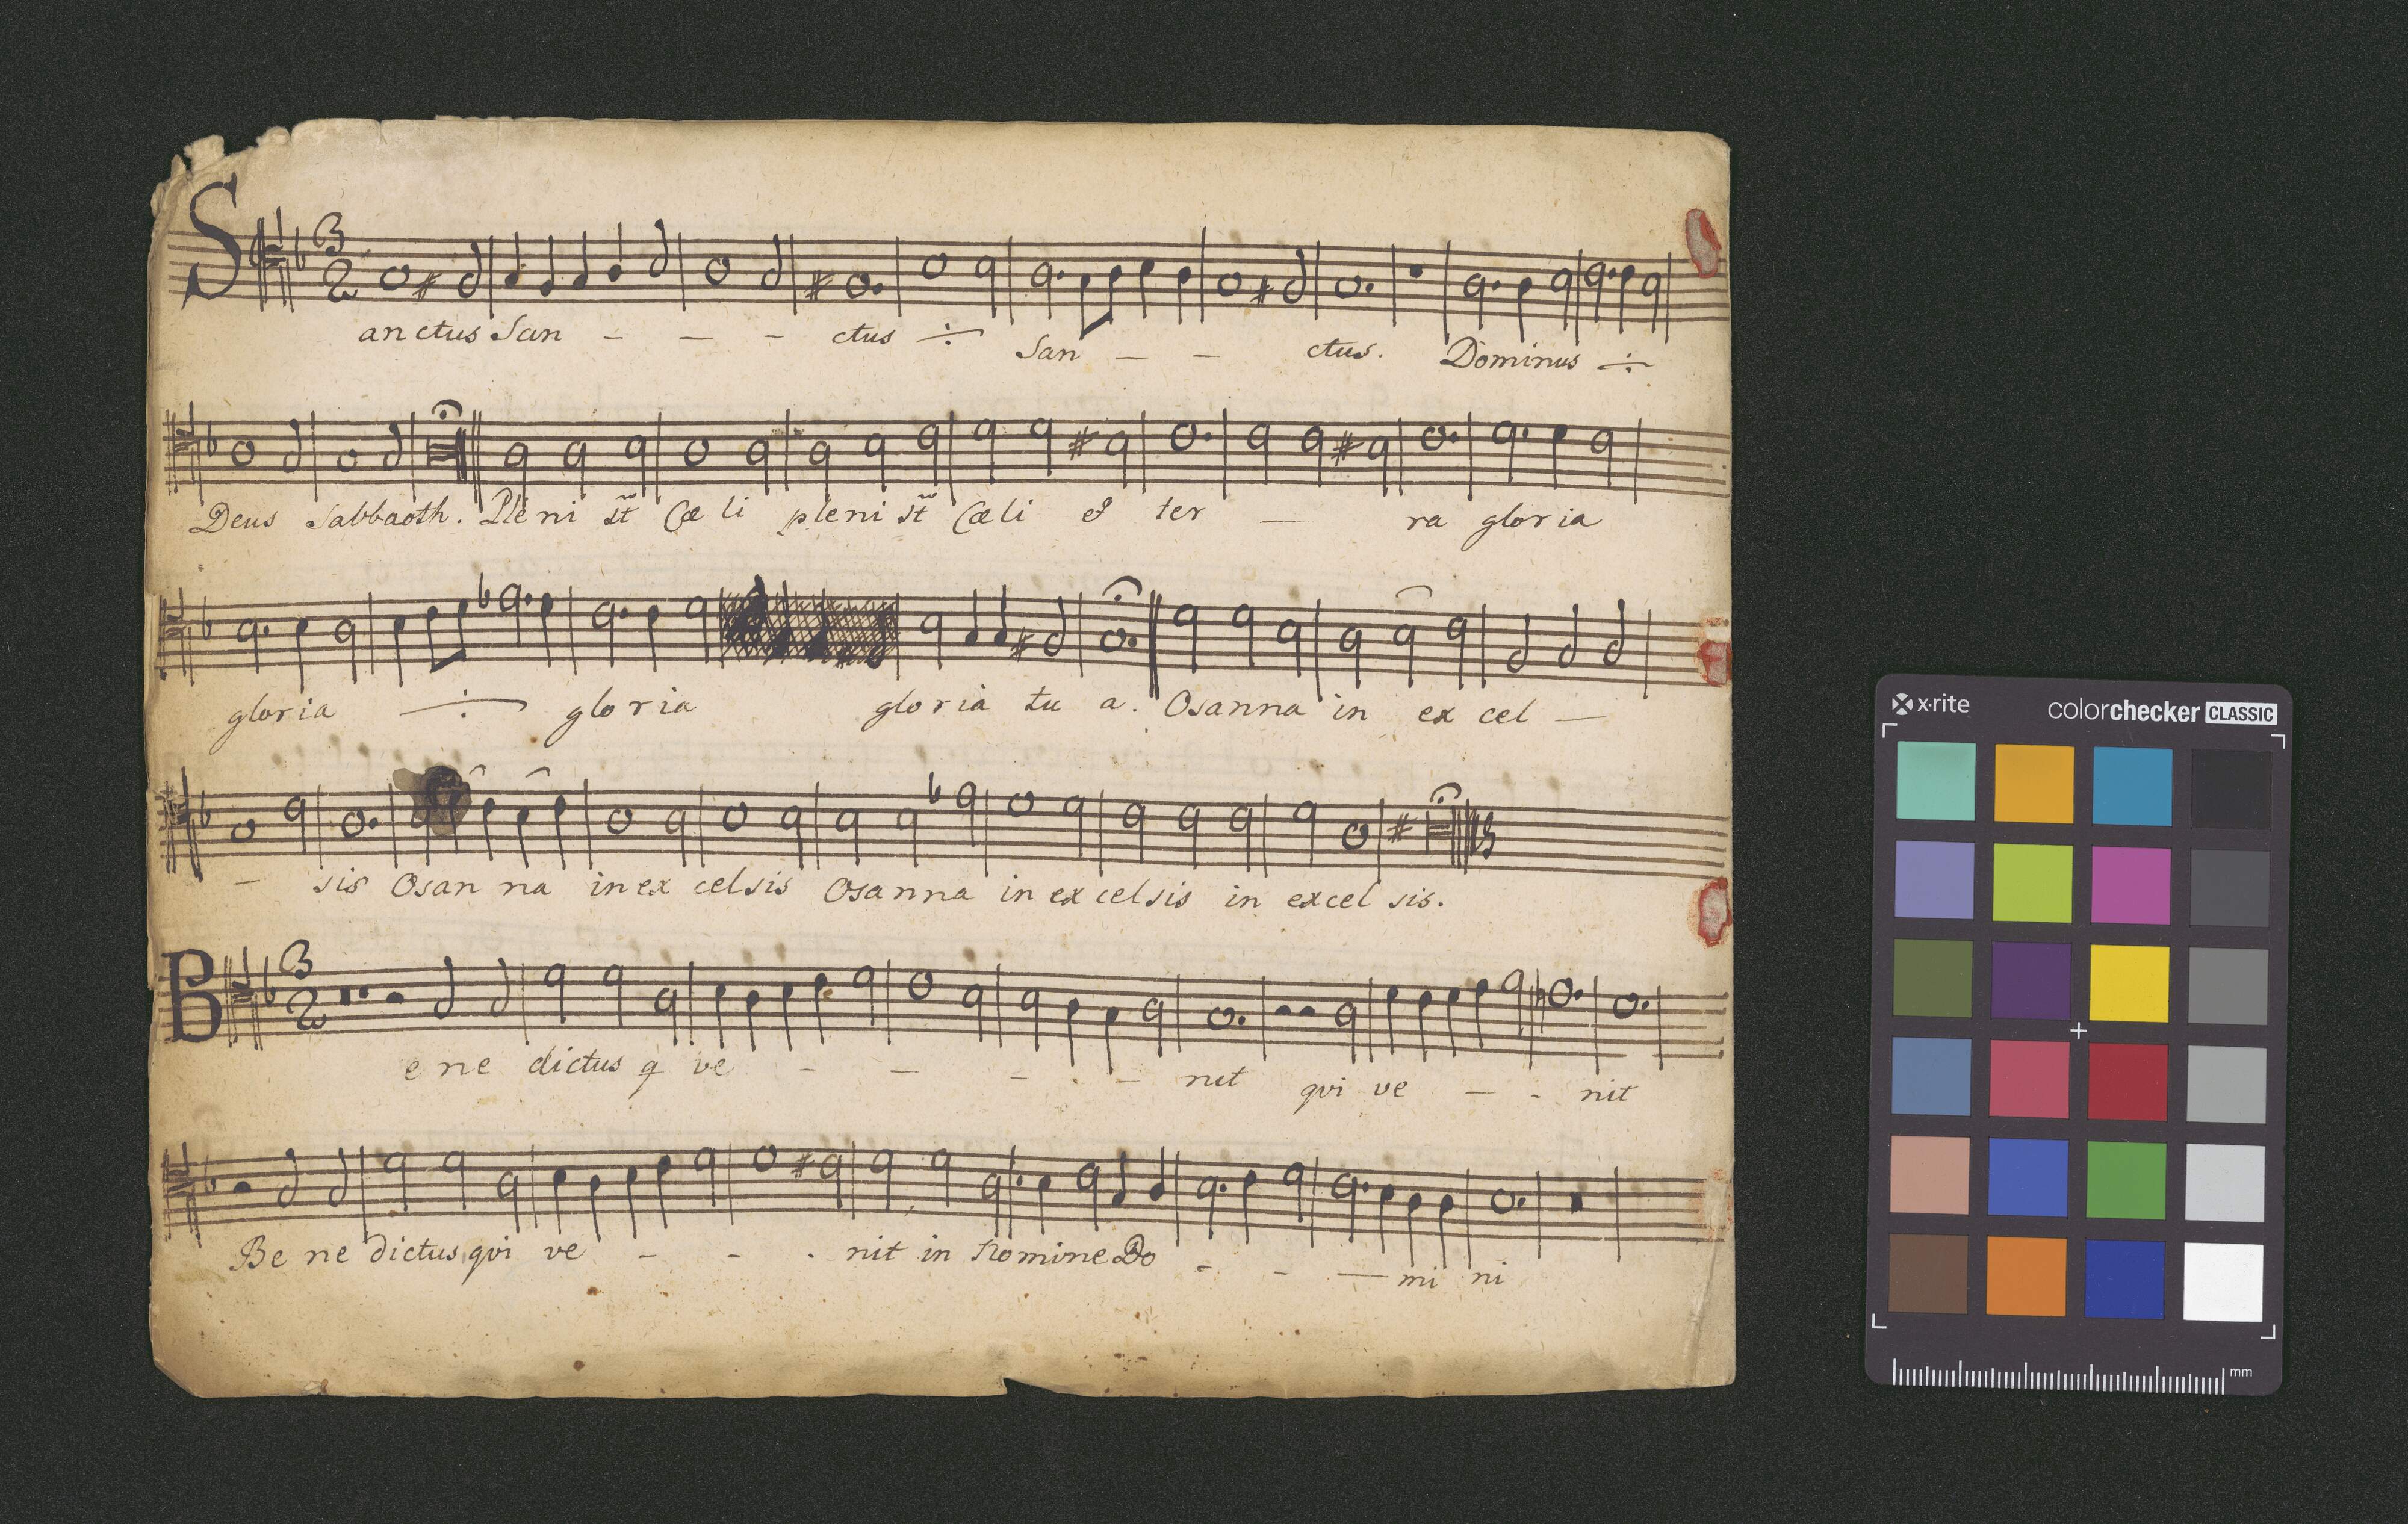 S 3 2
anctus San - - - ctus ÷ San - - ctus. Dominus ÷
Deus Sabbaoth. Pleni st̃ Cœli pleni st̃ Cœli et ter - ra gloria
gloria ÷ gloria gloria tu a. Osanna in ex cel -
- sis Osan na in ex celsis Osanna in ex celsis in excel sis.
B 3 2
e ne dictus q ve - - - . - nit qui ve - - nit
Be ne dictus qui ve - - . nit in Nomine Do - - - mi ni
x·rite colorchecker CLASSIC
mm